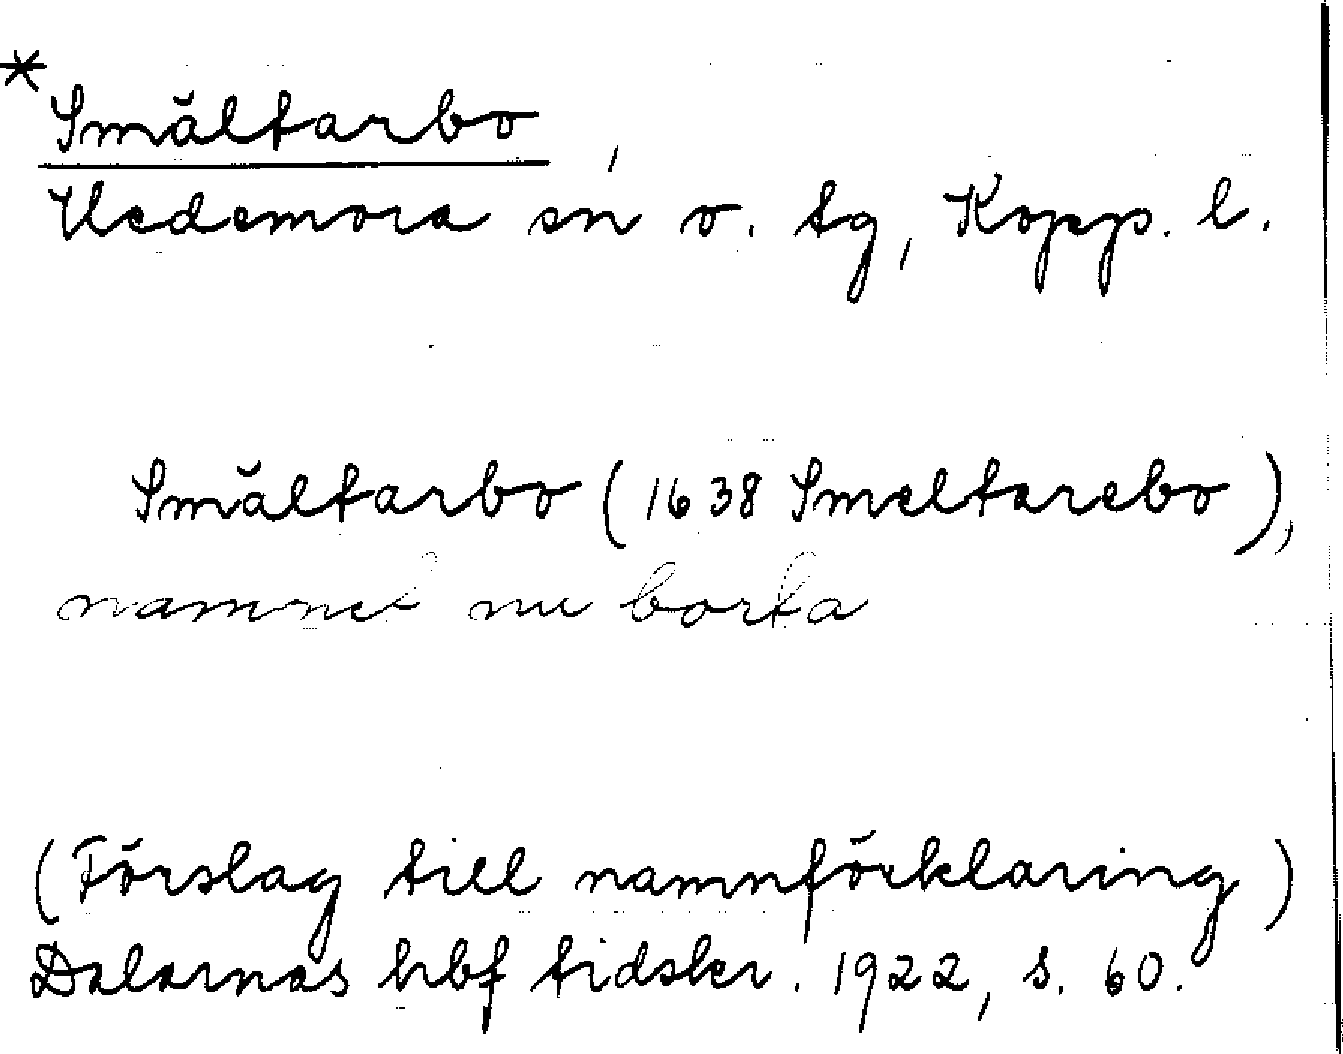 *
Smältarbo
Hedemora sn o. tg, Kopp. l.
Smältarbo (1638 Smeltarebo),
namnet nu borta
(Förslag till namnförklaring)
Dalarnas hbf tidskr. 1922, s. 60.